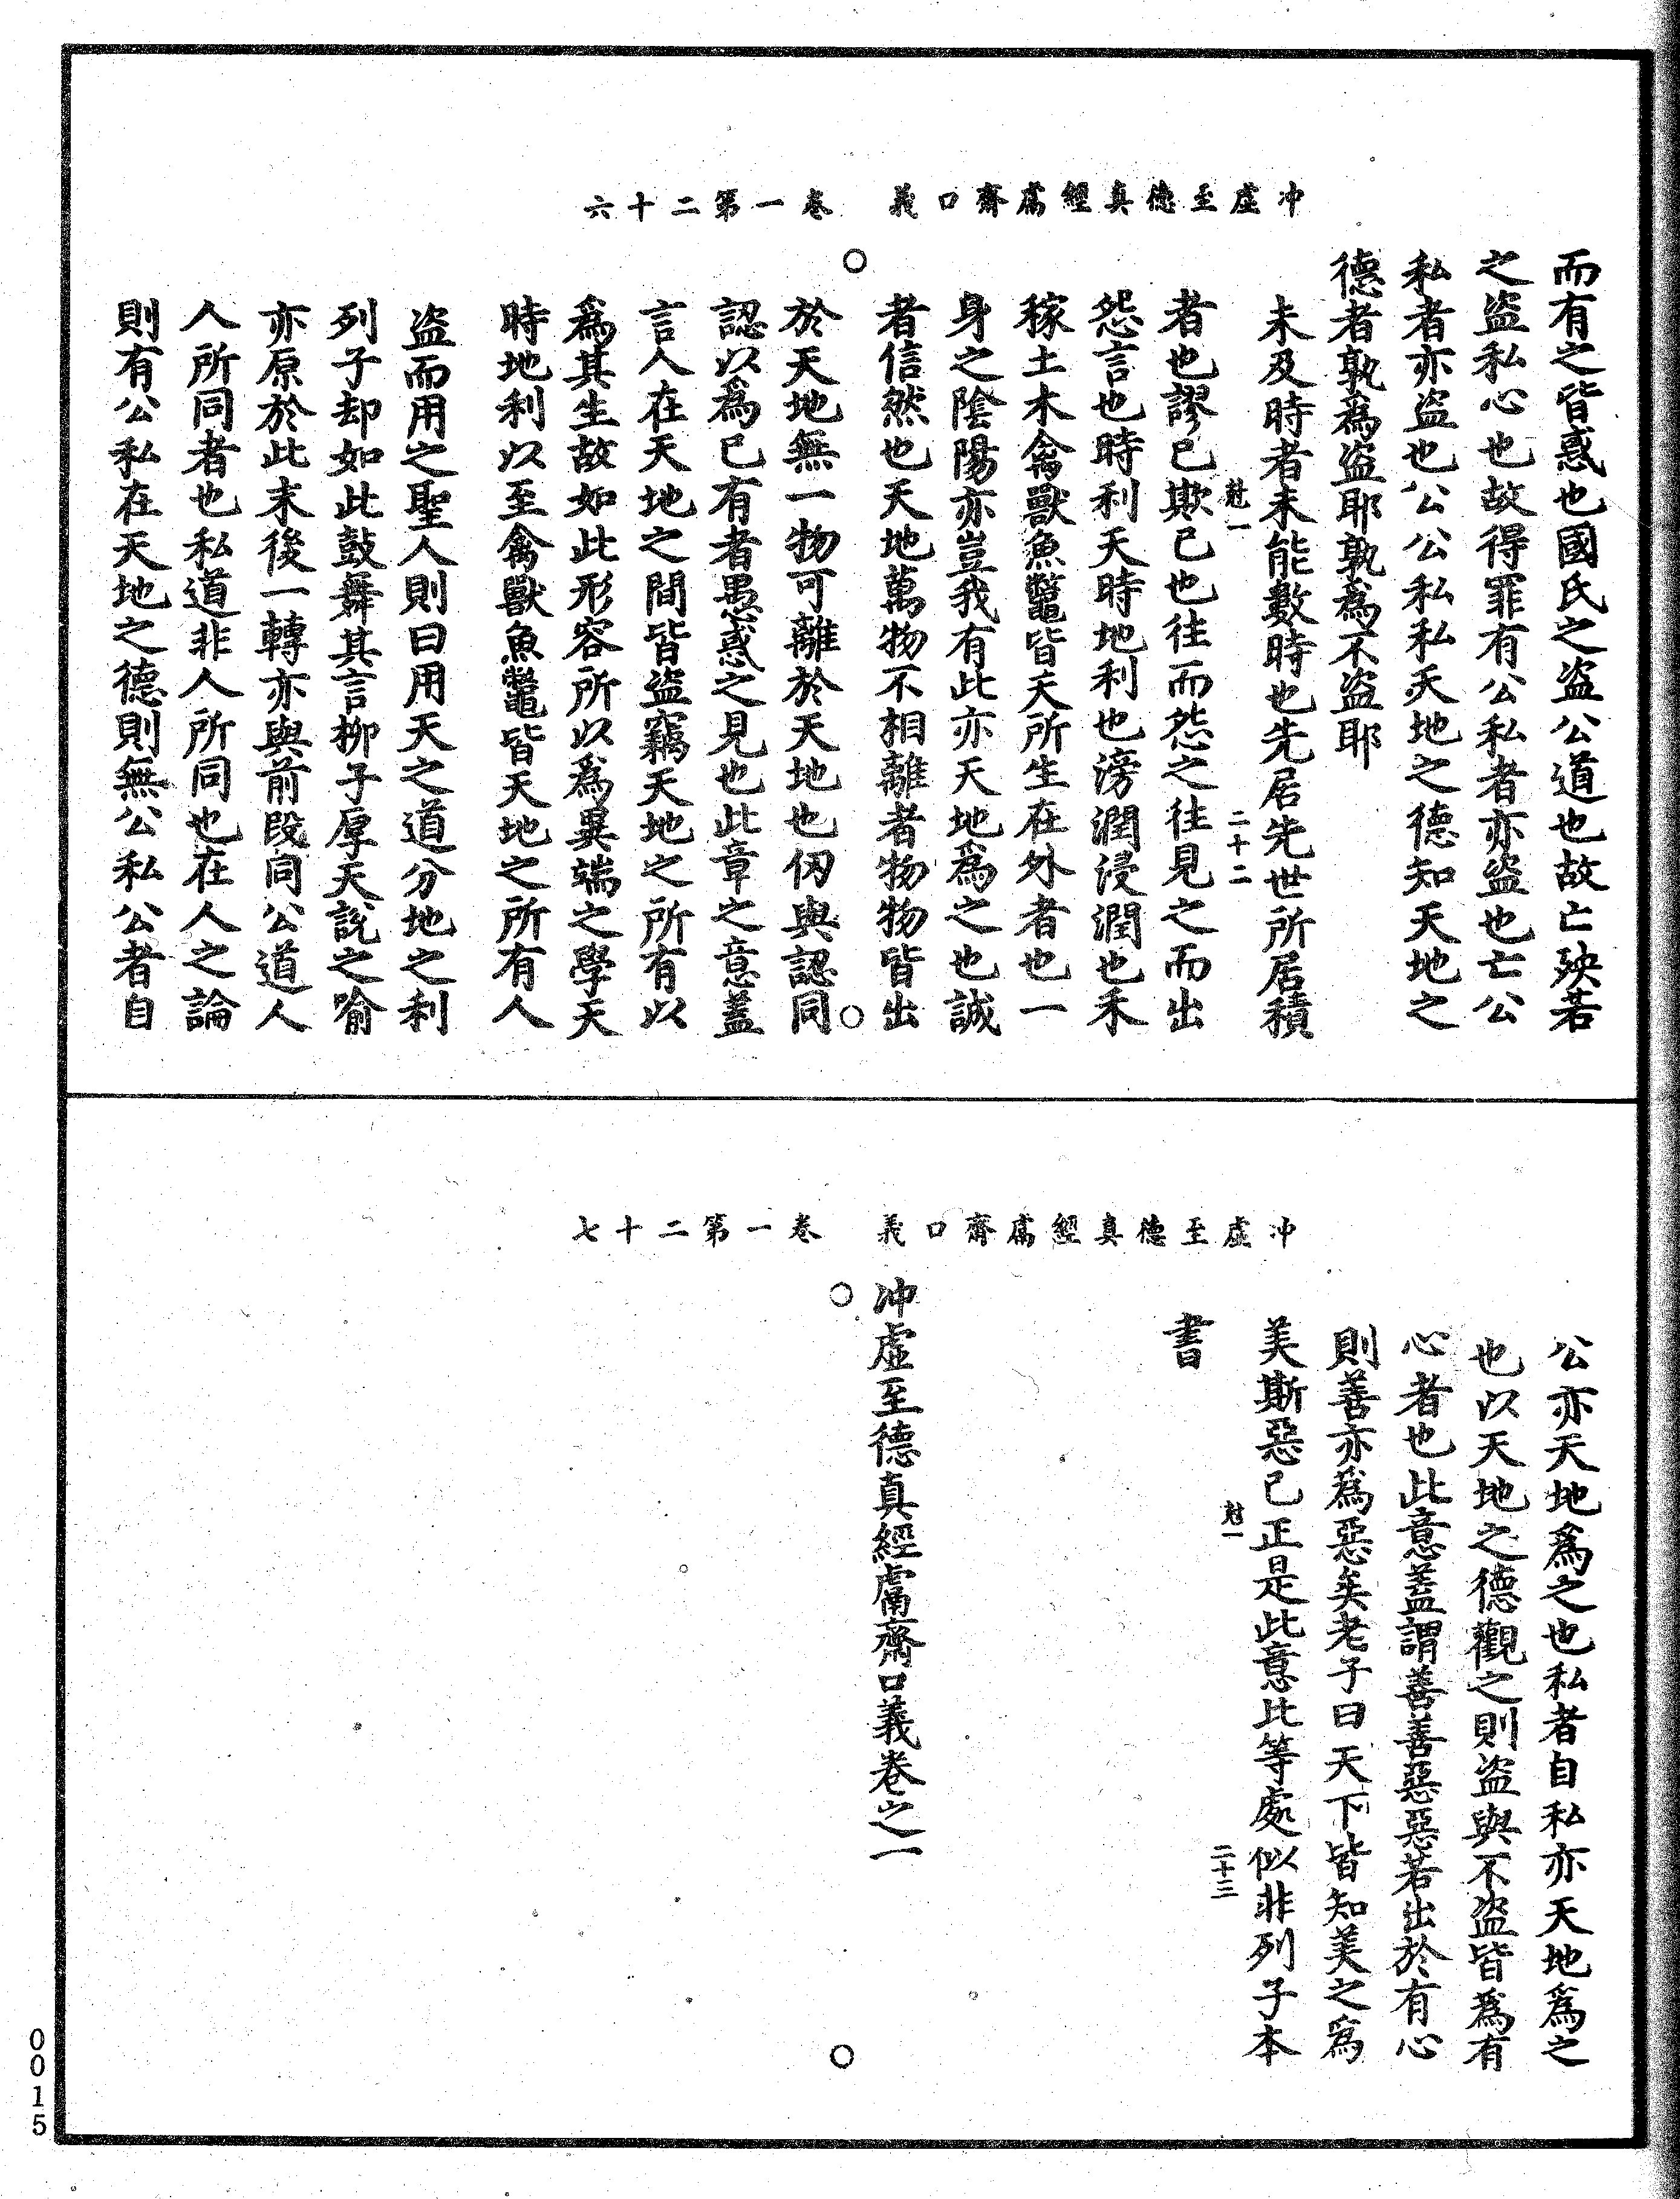 冲虛至德真經鬳齋口義 卷一第二十六
而有之皆惑也國氏之盜公道也故亡殃若
之盜私心也故得罪有公私者亦盜也亡公
私者亦盜也公公私私天地之德知天地之
德者孰為盜耶孰為不盜耶
未及時者未能數時也先居先世所居積
尅一
二十二
者也謬己欺己也往而怨之往見之而出
怨言也時利天時地利也滂潤浸潤也禾
稼土木禽獸魚鼈皆天所生在外者也一
身之陰陽亦豈我有此亦天地爲之也誠
者信然也天地萬物不相離者物物皆出
於天地無一物可離於天地也仞與認同
認以爲己有者愚惑之見也此章之意蓋
言人在天地之間皆盜竊天地之所有以
爲其生故如此形容所以爲異端之學天
時地利以至禽獸魚鼈皆天地之所有人
盜而用之聖人則曰用天之道分地之利
列子却如此鼓舞其言柳子厚天說之喻
亦原於此末後一轉亦與前段同公道人
人所同者也私道非人所同也在人之論
則有公私在天地之德則無公私公者自
冲虛至德真經鬳齋口義 卷一第二十七
公亦天地爲之也私者自私亦天地爲之
也以天地之德觀之則盜與不盜皆爲有
心者也此意蓋謂善善惡惡若出於有心
則善亦爲惡矣老子曰天下皆知美之爲
美斯惡已正是此意比等處似非列子本
尅一
二十三
書
冲虛至德真經鬳齋口義卷之一
0015